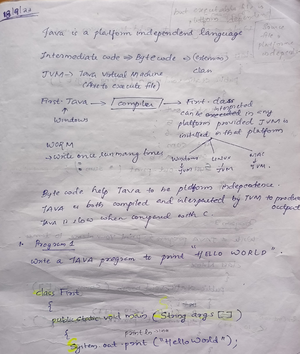 18/9/23
Java is a platform independent language
Intermediate code → Bytecode →
class
JVM → Java Virtual Machine
First Java → compiler → First. class
Windows
can be interpreted in any
platform provided JVM is
installed on that platform
WORM
→ Write once run many times
Windows UNIX MAC
JVM JVM JVM
Byte code help Java to be platform independence.
JAVA is both compiled and interpreted by JVM to produce
output
Java is slow when compared with C.
Program 1
Write a JAVA program to print "HELLO WORLD".
class First
{
public static void main (String args [])
{
println
System.out.print ("Hello World");